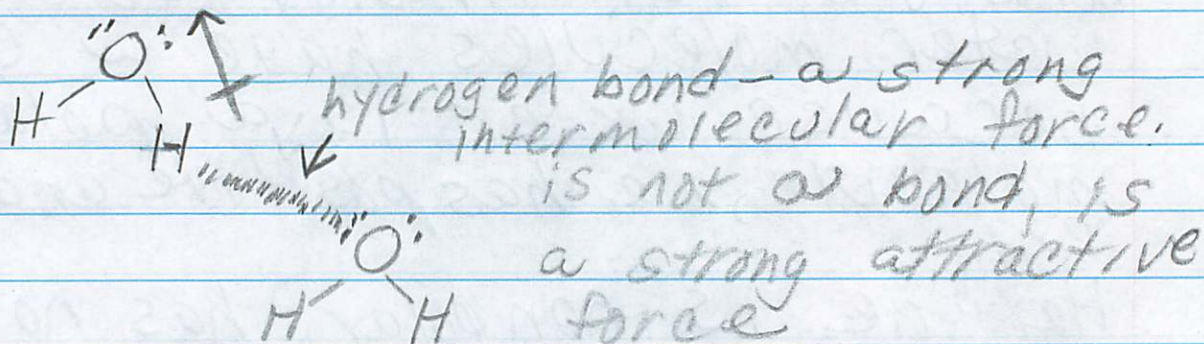 O
H H
hydrogen bond - a strong
intermolecular force.
is not a bond, is
a strong attractive
force
O
H H